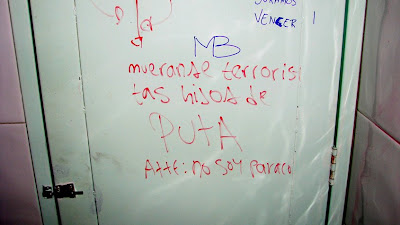 JURAMOS
VENCER !
MB
mueranse terroris
tas hijos de
PUTA
Atte: no soy paraco